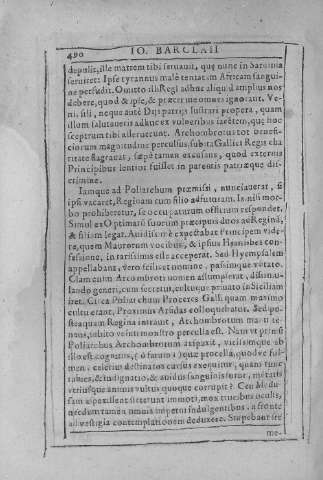 490 IO. BARCLAII
depulit, ille matrem tibi seruauit, quę nunc in Sardinia
seruiret: Ipse tyrannus malè tentatam Africam sangui-
ne persudit. Omitto illi Regi adhuc aliquid amplius nos
debere, quod & ipse, & præter me omnes ignorant. Ve-
ni, fili, neque antè Diis patriis lustrari propera, quàm
illum salutaueris adhuc ex vulneribus iacētem, quę hoc
sceptrum tibi asseruerunt. Archombrotus tot benefi-
ciorum magnitudine perculsus, subita Gallici Regis cha-
ritate flagrauat, sæpè tamen excusans, quòd externis
Principibus lentior fuisset in parentis patriæque dis-
crimine.
Iamque ad Poliarchum præmissi, nunciauerat, si
ipsi vacaret, Reginam cum filio adfuturam. Is, nisi mor-
bo prohiberetur, se occupaturum officium respondet.
Simul ex Optimatū suorum præcipuis duos ad Reginā,
& filiam legat. Auidissimè expectabat Principem vide-
re, quem Maurorum vocibus, & ipsius Hyanisbes con-
fessione, in rarissimis esse acceperat. Sed Hyempsalem
appellabant, vero scilicet nomine, passimque vsitato.
Clàm enim Archombroti nomen assumpserat, dissimu-
lando generi, cùm secretus, cultuque priuato in Siciliam
iret. Circa Poliarchum Proceres Galli quàm maximo
cultu erant. Proximus Arsidas colloquebatur. Sed po-
steaquam Regina intrauit, Archombrotum manu te-
nens, subitò velut monstro perculsa est. Nam vt primùm
Poliarchus Archombrotum aspexit, vicissimque ab
illo est cognitus, (ô furiis!) quæ procella, quod ve ful-
men, celerius destinatos cursus exequitur, quàm tunc
rabies, & indignatio, & auidus sanguinis furor, mētes
vtriusque animis vultus quoque corrupit? Ceu Medu-
sam aspexissent steterunt immoti, mox trucibus oculis,
necdum tamen omnis impetus indulgentibus, à fronte
ad vestigia contemplationem deduxere. Stupebant se-
me-